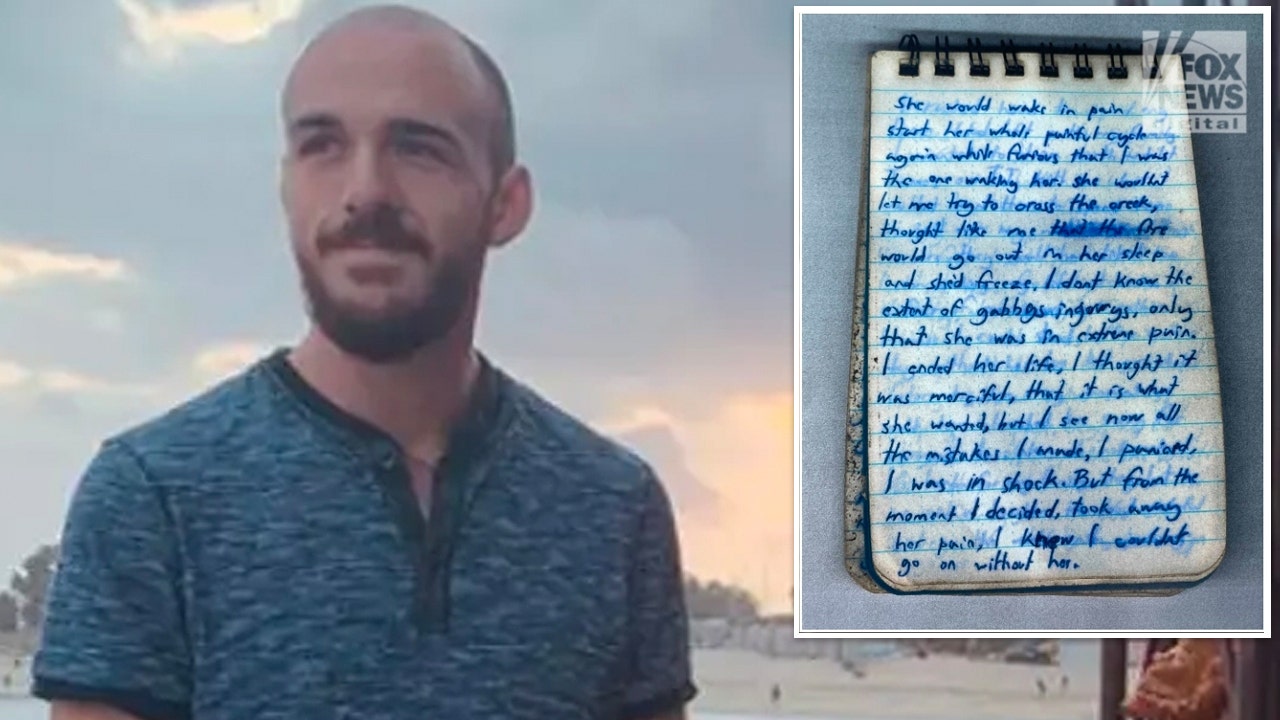 FOX
NEWS
gital
She would wake in pain
start her whole painful cycle
again while furious that I was
the one waking her. she wouldnt
let me try to cross the creek,
thought like me that the fire
would go out in her sleep
and she'd freeze, I dont know the
extent of gabbys injourys, only
that she was in extreme pain.
I ended her life, I thought it
was merciful, that it is what
she wanted, but I see now all
the mistakes I made, I paniced,
I was in shock. But from the
moment I decided, took away
her pain, I knew I couldnt
go on without her.